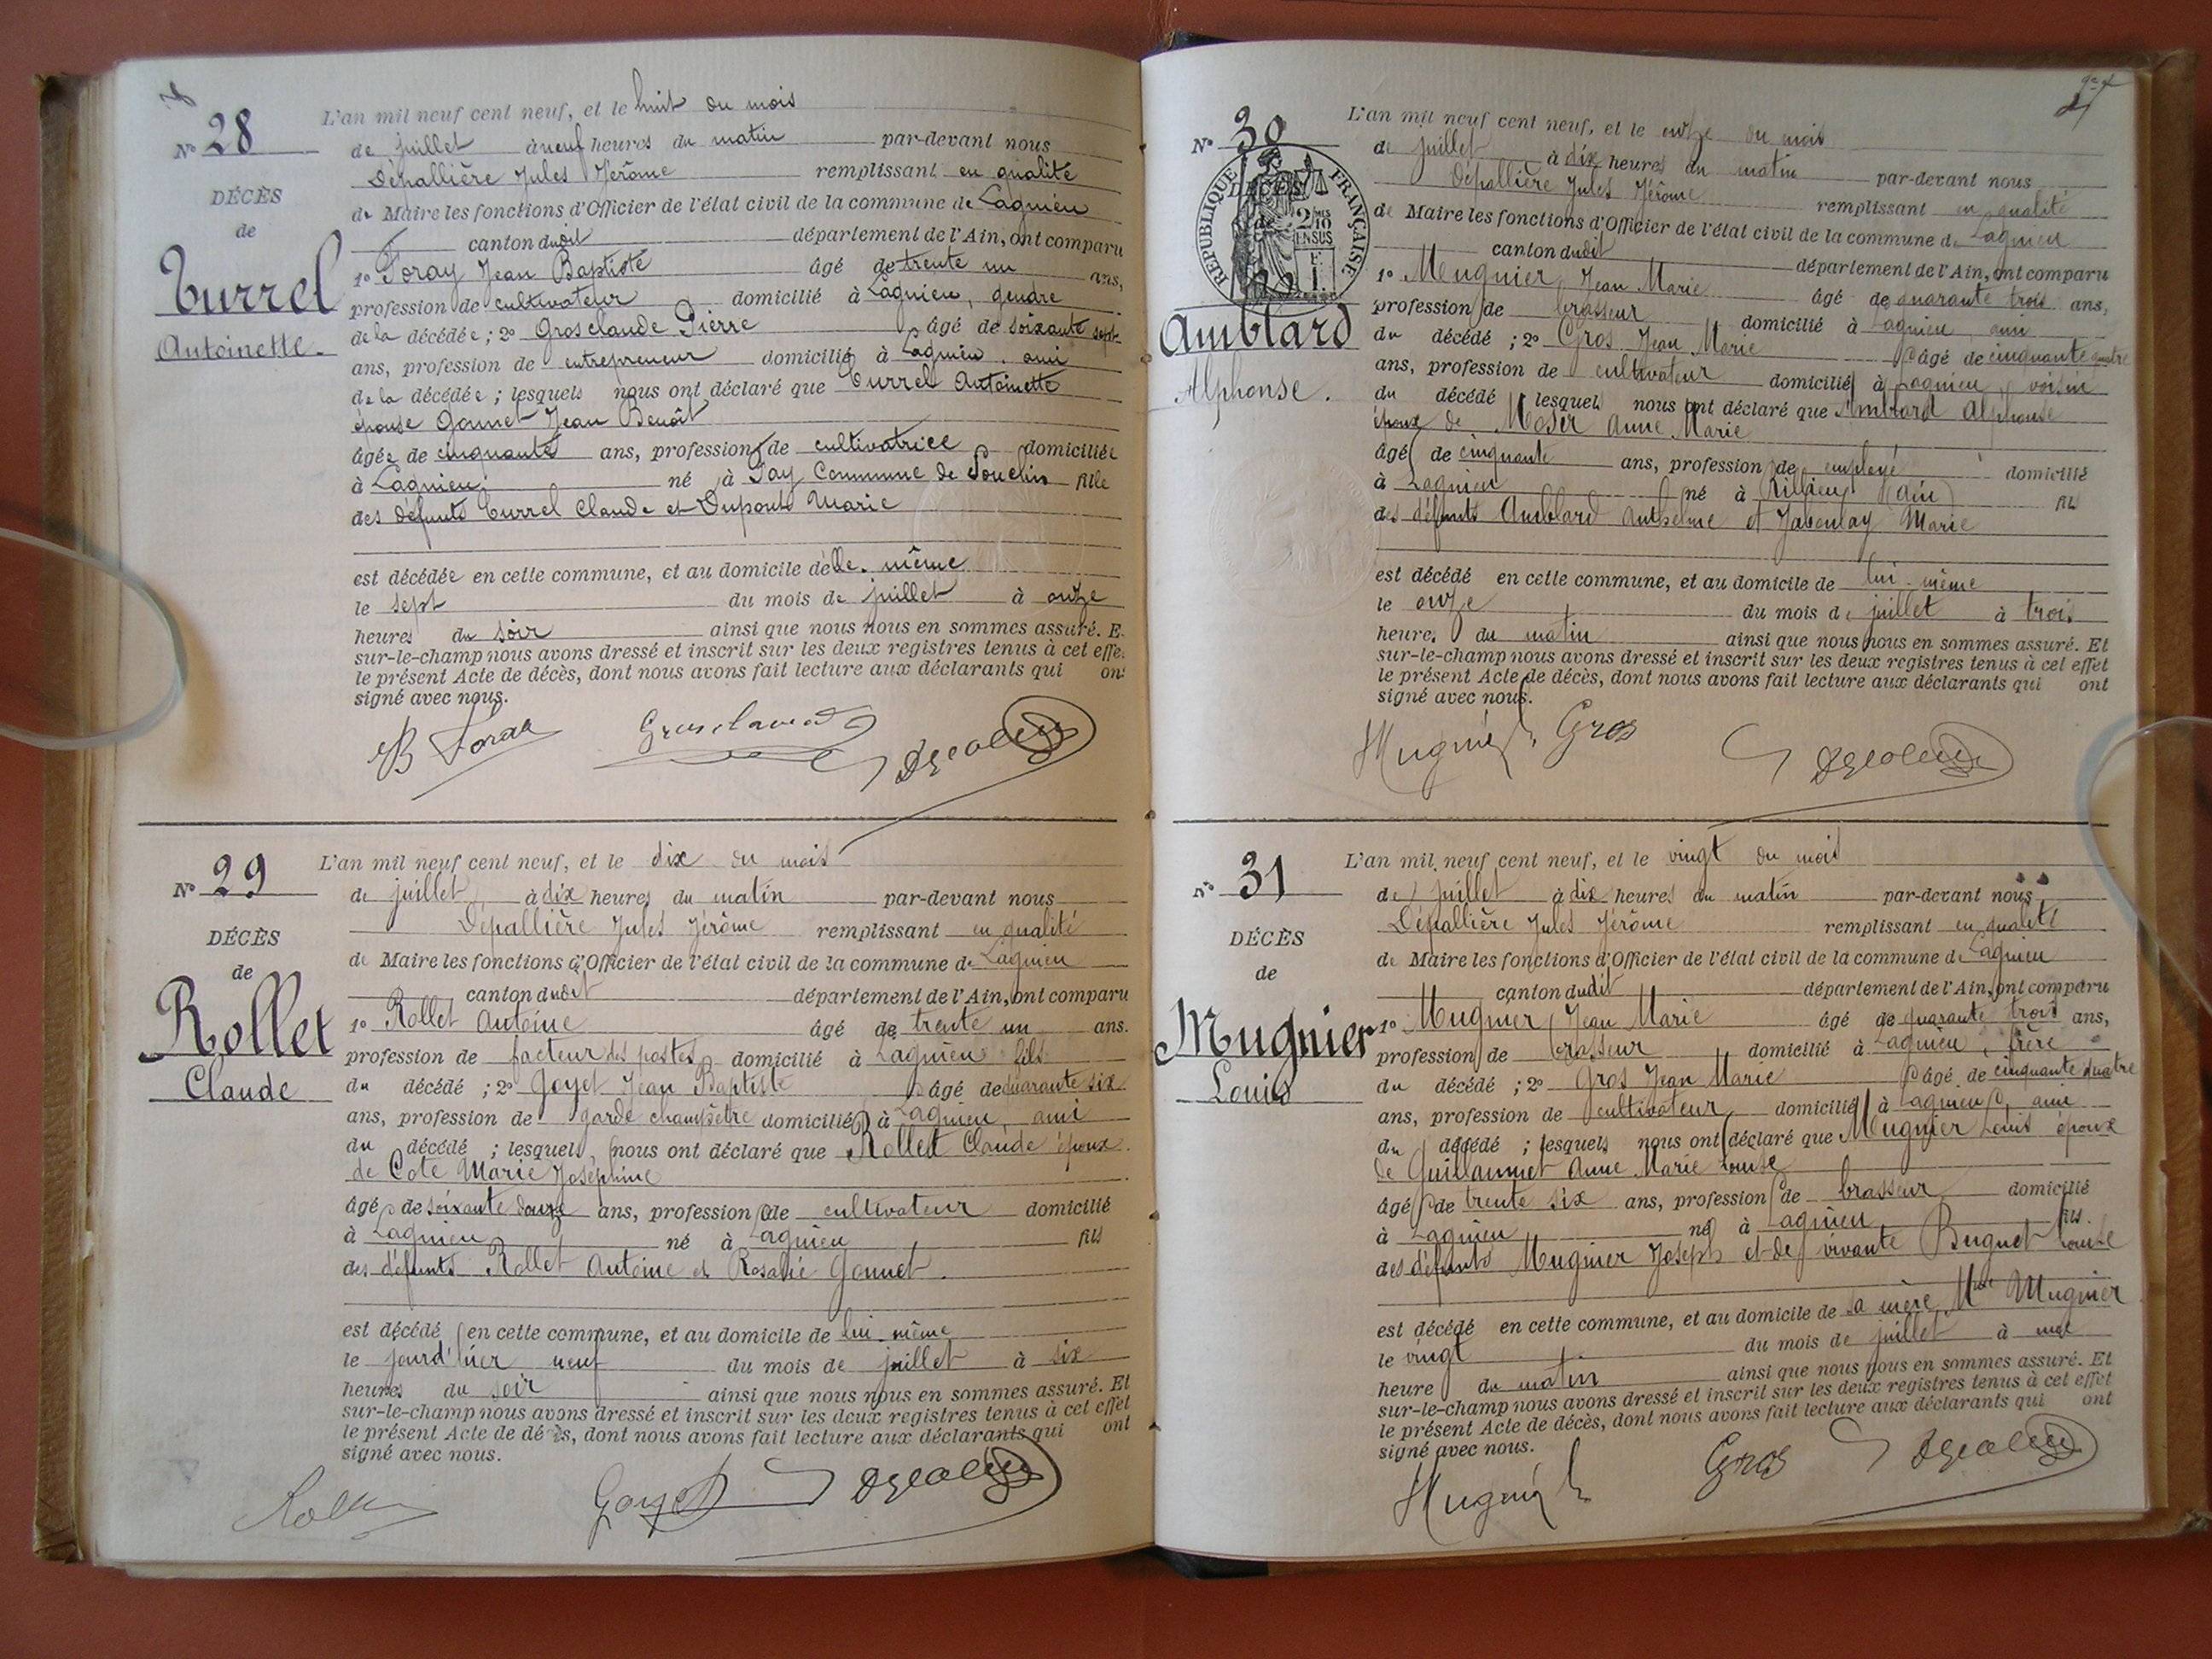 N° 28
DÉCÈS
de
Turrel
Antoinette
L'an mil neuf cent neuf, et le huit du mois
de juillet à neuf heures du matin par-devant nous
Dépallière Jules Jérôme remplissant en qualité
de Maire les fonctions d'Officier de l'état civil de la commune de Lagnieu
canton dudit département de l'Ain, ont comparu
1° Foray Jean Baptiste âgé de trente un ans,
profession de cultivateur domicilié à Lagnieu, gendre
de la décédée ; 2° Grosclaude Pierre âgé de soixante sept
ans, profession de entrepreneur domicilié à Lagnieu, ami
de la décédée ; lesquels nous ont déclaré que Turrel Antoinette
épouse Gonnet Jean Benoît
âgée de cinquante ans, profession de cultivatrice domiciliée
à Lagnieu né à Fay Commune de Souclin fille
des défunts Turrel Claude et Dupont Marie
est décédée en cette commune, et au domicile de elle-même
le sept du mois de juillet à onze
heures du soir ainsi que nous nous en sommes assuré. E
sur-le-champ nous avons dressé et inscrit sur les deux registres tenus à cet effe
le présent Acte de décès, dont nous avons fait lecture aux déclarants qui on
signé avec nous.
N° 29
DÉCÈS
de
Rollet
Claude
L'an mil neuf cent neuf, et le dix du mois
de juillet à dix heures du matin par-devant nous
Dépallière Jules Jérôme remplissant en qualité
de Maire les fonctions d'Officier de l'état civil de la commune de Lagnieu
canton dudit département de l'Ain, ont comparu
1° Rollet Antoine âgé de trente un ans.
profession de facteur des postes domicilié à Lagnieu fils
du décédé ; 2° Goyet Jean Baptiste âgé de quarante six
ans, profession de garde champêtre domicilié à Lagnieu, ami
du décédé ; lesquels nous ont déclaré que Rollet Claude époux
de Cote Marie Joséphine
âgé de soixante douze ans, profession de cultivateur domicilié
à Lagnieu né à Lagnieu fils
des défunts Rollet Antoine et Rosalie Gonnet.
est décédé en cette commune, et au domicile de lui-même
le jourd'hier neuf du mois de juillet à six
heures du soir ainsi que nous nous en sommes assuré. Et
sur-le-champ nous avons dressé et inscrit sur les deux registres tenus à cet effet
le présent Acte de décès, dont nous avons fait lecture aux déclarants qui ont
signé avec nous.
Goyet
N° 30
RÉPUBLIQUE FRANÇAISE
DÉCÈS
de
2/10 EN SUS
Amblard
Alphonse.
L'an mil neuf cent neuf, et le onze du mois
de juillet à dix heures du matin par-devant nous
Dépallière Jules Jérôme remplissant en qualité
de Maire les fonctions d'Officier de l'état civil de la commune de Lagnieu
canton dudit département de l'Ain, ont comparu
1° Meugnier Jean Marie âgé de quarante trois ans,
profession de brasseur domicilié à Lagnieu ami
du décédé ; 2° Gros Jean Marie âgé de cinquante quatre
ans, profession de cultivateur domicilié à Lagnieu, voisin
du décédé lesquels nous ont déclaré que Amblard Alphonse
époux de Moser Anne Marie
âgé de cinquante ans, profession de employé domicilié
à Lagnieu né à Rillieux (Ain) fils
des défunts Amblard Anthelme et Jaboulay Marie
est décédé en cette commune, et au domicile de lui-même
le onze du mois de juillet à trois
heures du matin ainsi que nous nous en sommes assuré. Et
sur-le-champ nous avons dressé et inscrit sur les deux registres tenus à cet effet
le présent Acte de décès, dont nous avons fait lecture aux déclarants qui ont
signé avec nous.
Gros
N° 31
DÉCÈS
de
Mugnier
Louis
L'an mil neuf cent neuf, et le vingt du mois
de juillet à dix heures du matin par-devant nous
Dépallière Jules Jérôme remplissant en qualité
de Maire les fonctions d'Officier de l'état civil de la commune de Lagnieu
canton dudit département de l'Ain, ont comparu
1° Mugnier Jean Marie âgé de quarante trois ans,
profession de brasseur domicilié à Lagnieu, frère
du décédé ; 2° Gros Jean Marie âgé de cinquante quatre
ans, profession de cultivateur domicilié à Lagnieu, ami
du décédé ; lesquels nous ont déclaré que Mugnier Louis époux
de Guillaumet Anne Marie Louise
âgé de trente six ans, profession de brasseur domicilié
à Lagnieu né à Lagnieu fils.
des défunts Mugnier Joseph et de vivante Buguet Louise
est décédé en cette commune, et au domicile de sa mère Mme Mugnier
le vingt du mois de juillet à une
heure du matin ainsi que nous nous en sommes assuré. Et
sur-le-champ nous avons dressé et inscrit sur les deux registres tenus à cet effet
le présent Acte de décès, dont nous avons fait lecture aux déclarants qui ont
signé avec nous.
Gros